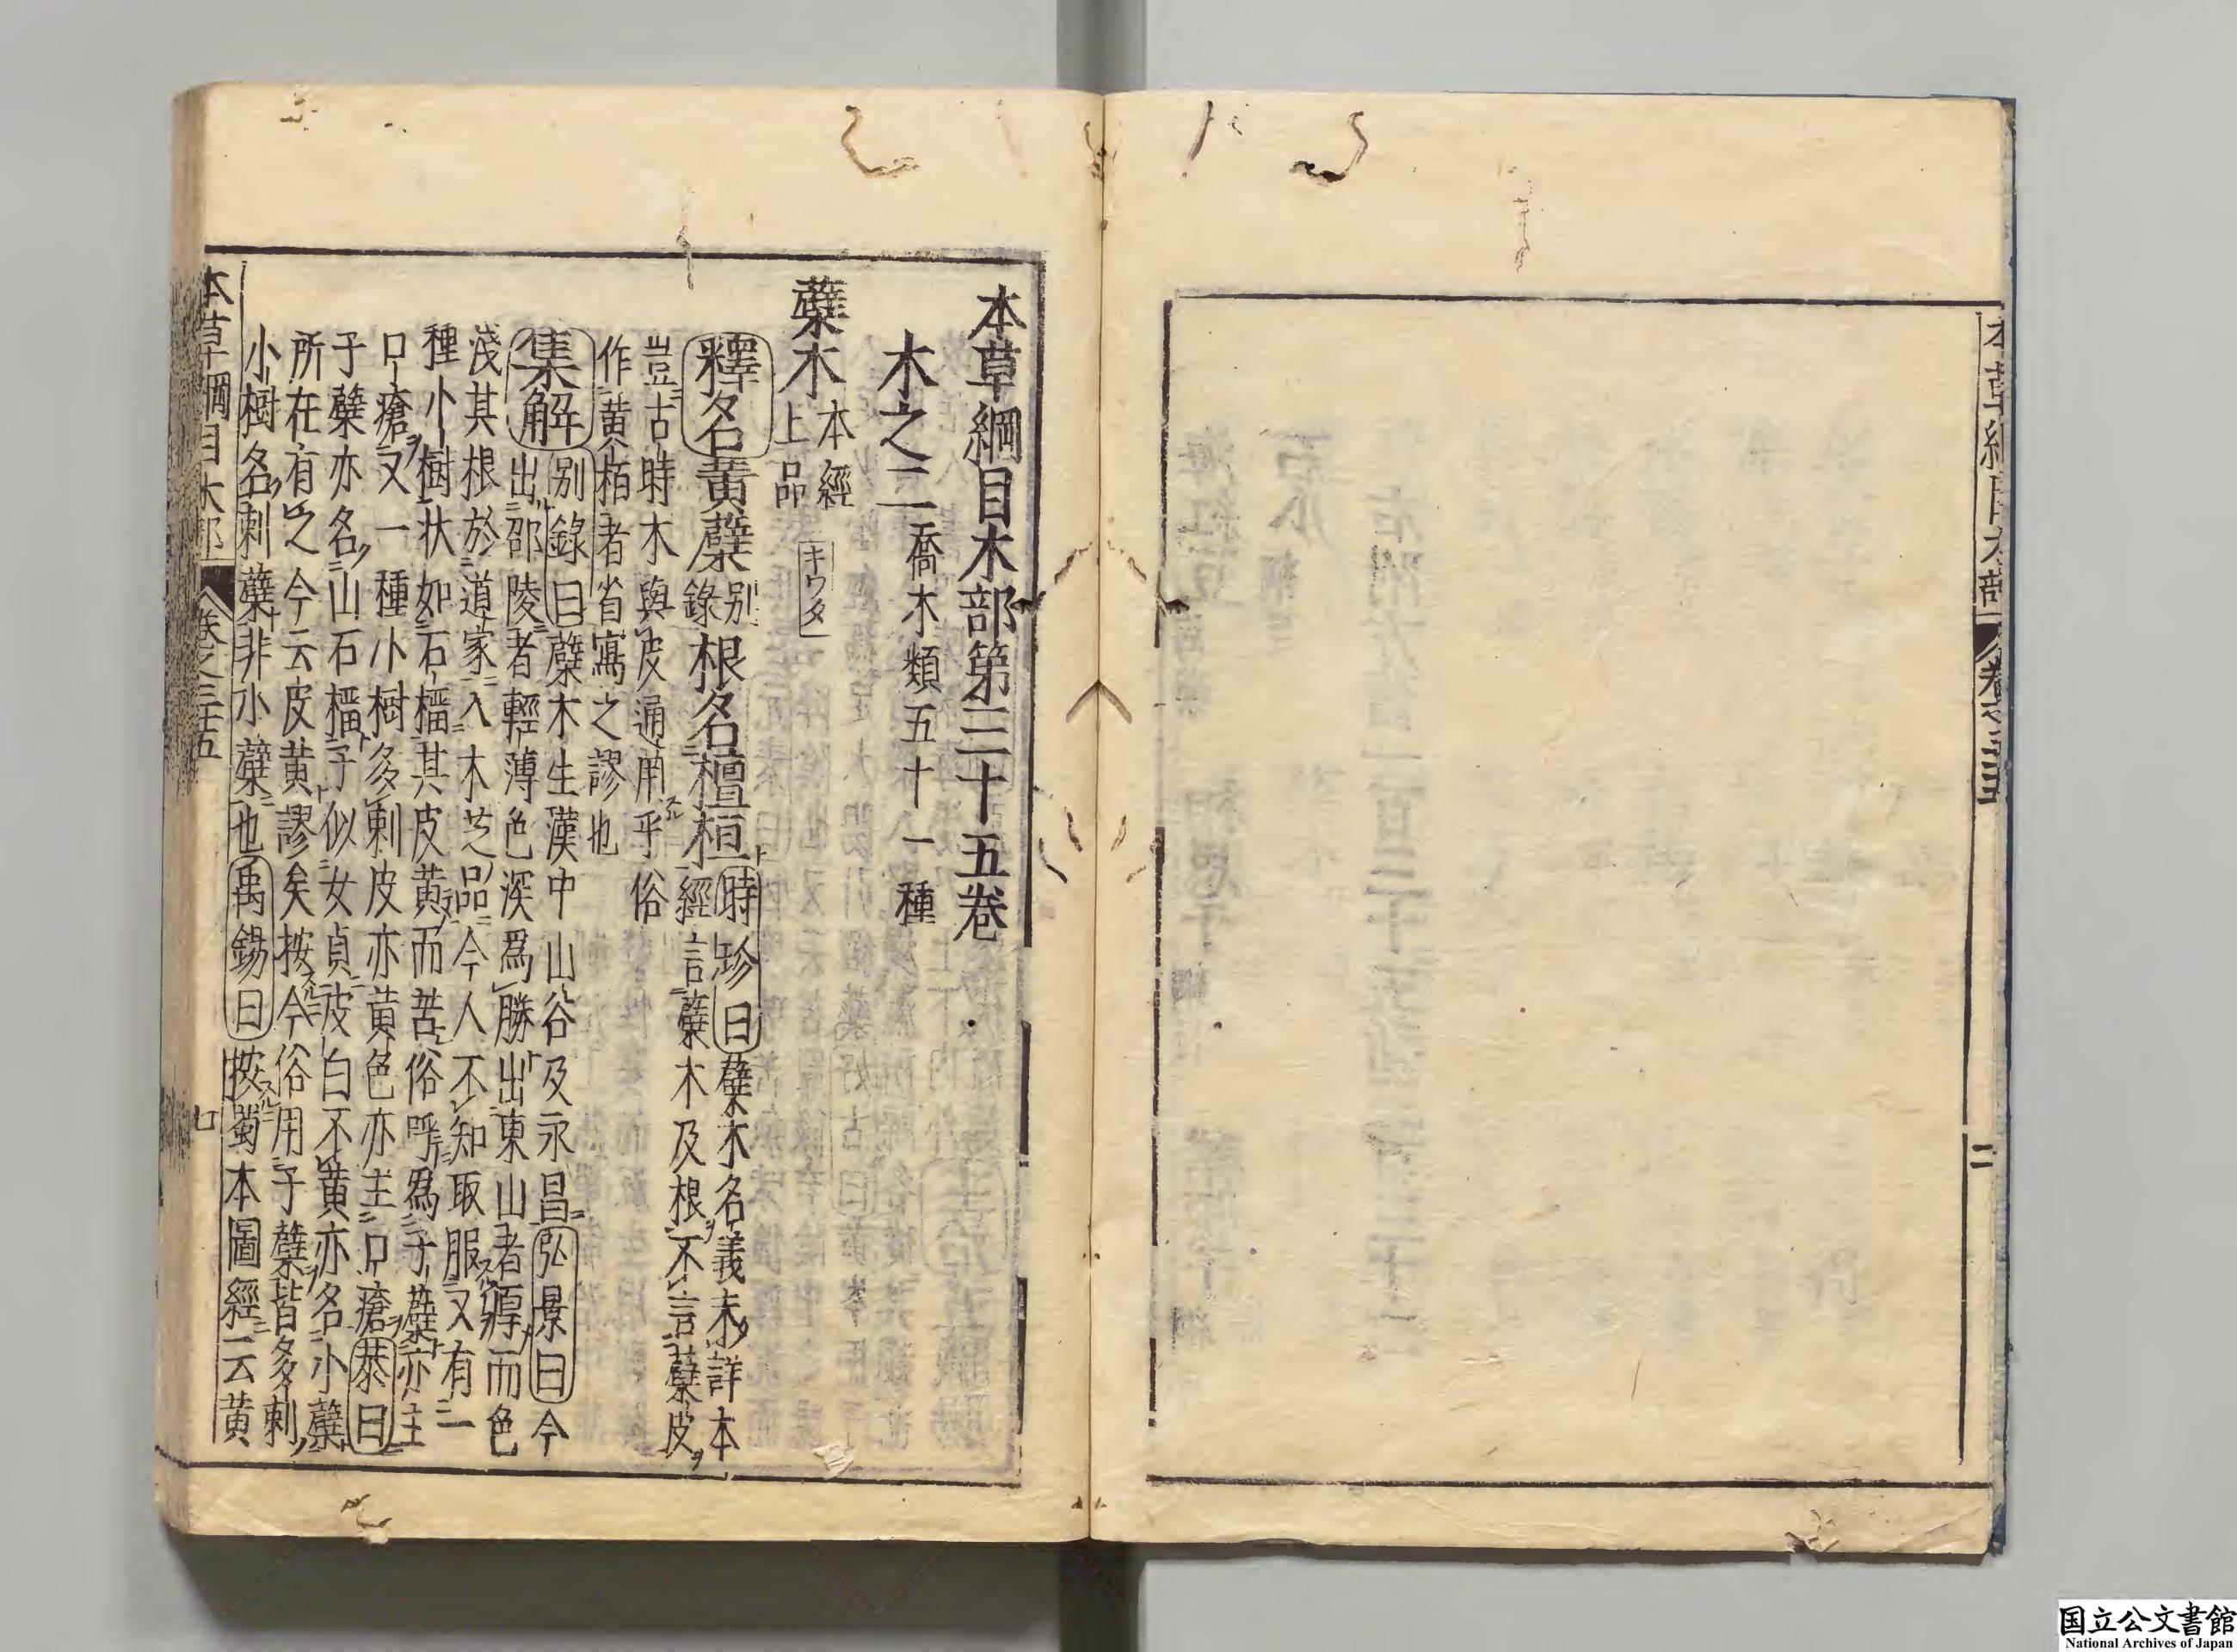 本草綱目木部 卷之三十五 二
本草綱目木部第三十五卷
木之二 喬木類五十一種
蘗木 本經上品 キワタ
釋名 黄蘗 别錄 根名檀桓 時珍曰蘗木名義未詳本經言蘗木及根不言蘗皮
豈古時木與皮通用乎俗
作黄栢者省寫之謬也
集解 别錄曰蘗木生漢中山谷及永昌弘景曰今
出邵陵者輕薄色深爲勝出東山者厚而色
淺其根於道家入木芝品今人不知取服又有一
種小樹状如石榴其皮黄而苦俗呼爲子蘗亦主
口瘡又一種小樹多刺皮亦黄色亦主口瘡恭曰
子蘗亦名山石榴子似女貞皮白不黄亦名小蘗
所在有之今云皮黄謬矣按今俗用子蘗皆多刺
小樹名刺蘗非小蘗也禹錫曰按蜀本圖經云黄
本草綱目木部 卷之三十五